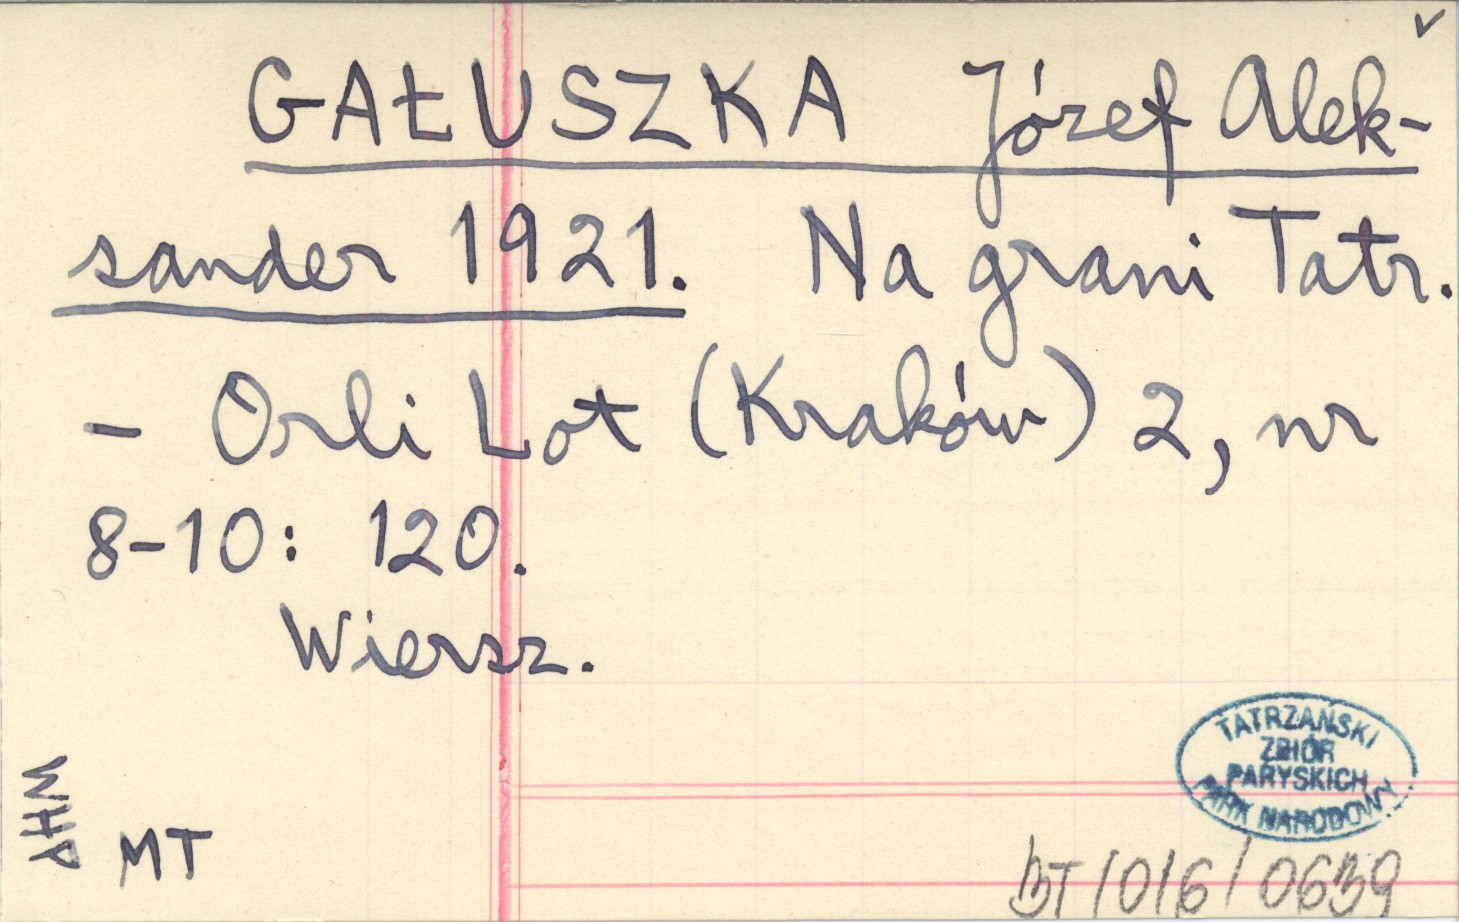 GAŁUSZKA Józef Alek-
sander 1921. Na grani Tatr.
- Orli Lot (Kraków) 2, nr
8-10: 120.
Wiersz.
WHP
MT
TATRZAŃSKI
ZBIÓR
PARYSKICH
PARK NARODOWY
BT/016/0639